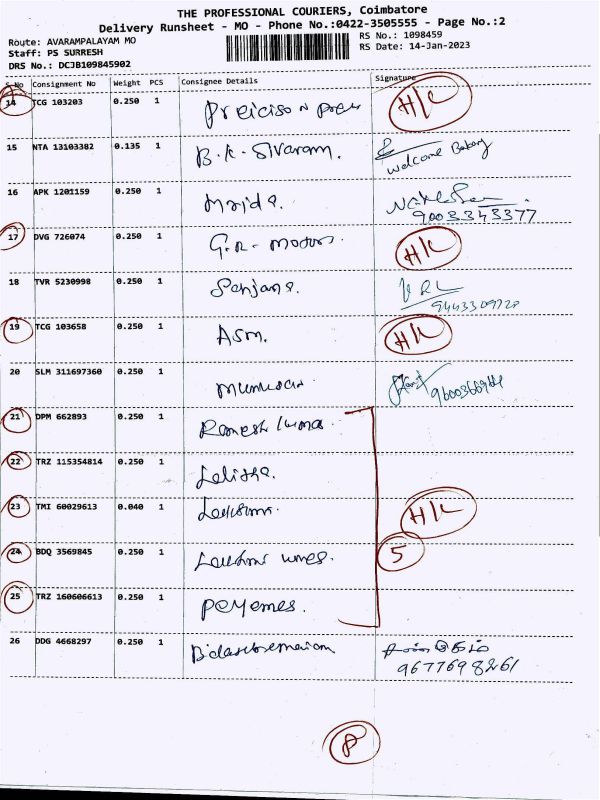 THE PROFESSIONAL COURIERS, Coimbatore
Delivery Runsheet - MO - Phone No.:0422-3505555 - Page No.:2
Route: AVARAMPALAYAM MO
RS No.: 1098459
Staff: PS SURRESH
RS Date: 14-Jan-2023
DRS No.: DCJB109845902
S.No Consignment No Weight PCS Consignee Details Signature
14 TCG 103203 0.250 1 H/L
15 NTA 13103382 0.135 1 B.K. Sivaram. Welcome Bakery
16 APK 1201159 0.250 1 9003343377
17 DVG 726074 0.250 1 G.R. Motors H/L
18 TVR 5230998 0.250 1 Sanjana. VRL
19 TCG 103658 0.250 1 ASM. H/L
20 SLM 311697360 0.250 1
21 DPM 662893 0.250 1 Ramesh Kumar
22 TRZ 115354814 0.250 1 Lalitha.
23 TMI 60029613 0.040 1 H/L
24 BDQ 3569845 0.250 1 5
25 TRZ 160606613 0.250 1
26 DDG 4668297 0.250 1 9677698261
P